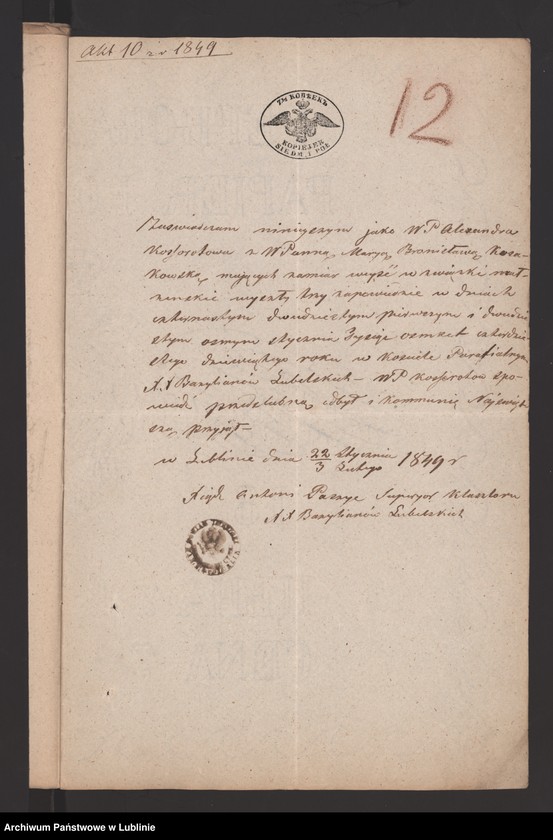 Akt 10 z r 1849
12
7M КОПѢЕКЪ
KOPIEJEK
SIEDM I PÓŁ
Zaświadczam niniejszym jako WP Alexandra
Kossorotowa z WPanną Maryą Bronisławą
kowską mających zamiar wejść w związki mał-
żenskie wyszły trzy zapowiedzie w dniach
czternastym dwudziestym pierwszym i dwudzie
stym osmym stycznia Tysiąc osmset czterdzie
stego dziewiątego roku w Kosciele Parafialnym
XX Bazylianów Lubelskich – WP Kossorotow spo-
wiedź przedślubną odbył i kommunię Najświęt
szą przyjął –
w Lublinie dnia 22/3 Stycznia/Lutego 1849 r
Xiądz Antoni Superyor Klasztoru
XX Bazylianów Lubelskich
Archiwum Państwowe w Lublinie